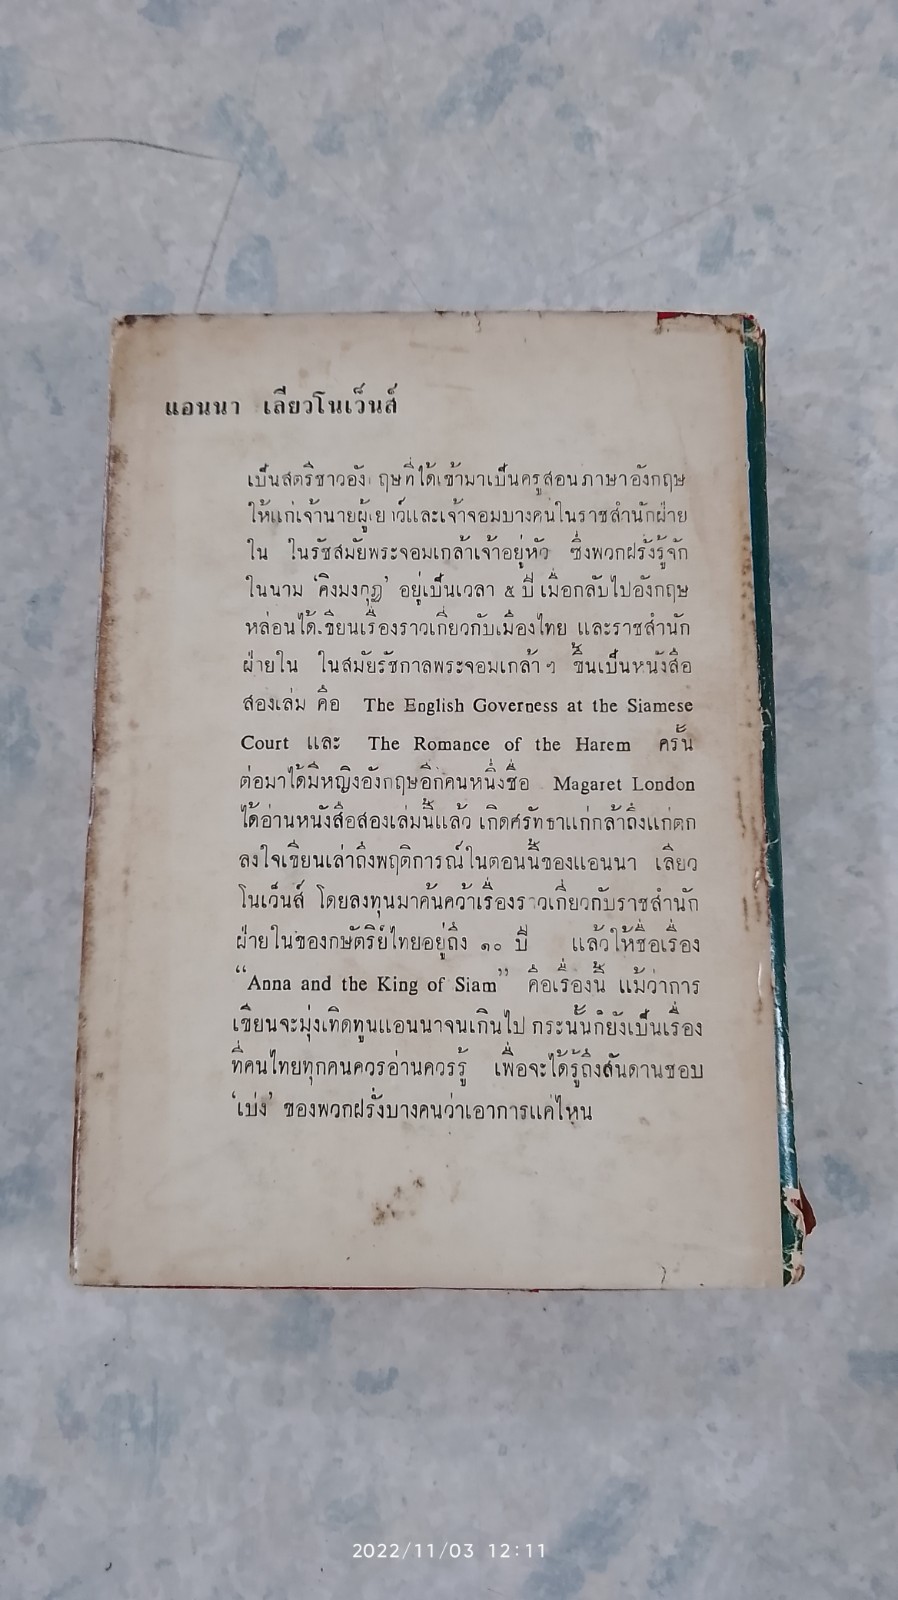 แอนนา เลียวโนเว็นส์
เป็นสตรีชาวอังกฤษที่ได้เข้ามาเป็นครูสอนภาษาอังกฤษ
ให้แก่เจ้านายผู้เยาว์และเจ้าจอมบางคนในราชสำนักฝ่าย
ใน ในรัชสมัยพระจอมเกล้าเจ้าอยู่หัว ซึ่งพวกฝรั่งรู้จัก
ในนาม ‘คิงมงกุฎ’ อยู่เป็นเวลา ๕ ปี เมื่อกลับไปอังกฤษ
หล่อนได้เขียนเรื่องราวเกี่ยวกับเมืองไทย และราชสำนัก
ฝ่ายใน ในสมัยรัชกาลพระจอมเกล้า ๆ ขึ้นเป็นหนังสือ
สองเล่ม คือ The English Governess at the Siamese
Court และ The Romance of the Harem ครั้น
ต่อมาได้มีหญิงอังกฤษอีกคนหนึ่งชื่อ Magaret London
ได้อ่านหนังสือสองเล่มนี้แล้ว เกิดศรัทธาแก่กล้าถึงแก่ตก
ลงใจเขียนเล่าถึงพฤติการณ์ในตอนนี้ของแอนนา เลียว
โนเว็นส์ โดยลงทุนมาค้นคว้าเรื่องราวเกี่ยวกับราชสำนัก
ฝ่ายในของกษัตริย์ไทยอยู่ถึง ๑๐ ปี แล้วให้ชื่อเรื่อง
“Anna and the King of Siam” คือเรื่องนี้ แม้ว่าการ
เขียนจะมุ่งเทิดทูนแอนนาจนเกินไป กระนั้นก็ยังเป็นเรื่อง
ที่คนไทยทุกคนควรอ่านควรรู้ เพื่อจะได้รู้ถึงสันดานชอบ
‘เบ่ง’ ของพวกฝรั่งบางคนว่าเอาการแค่ไหน
2022/11/03 12:11